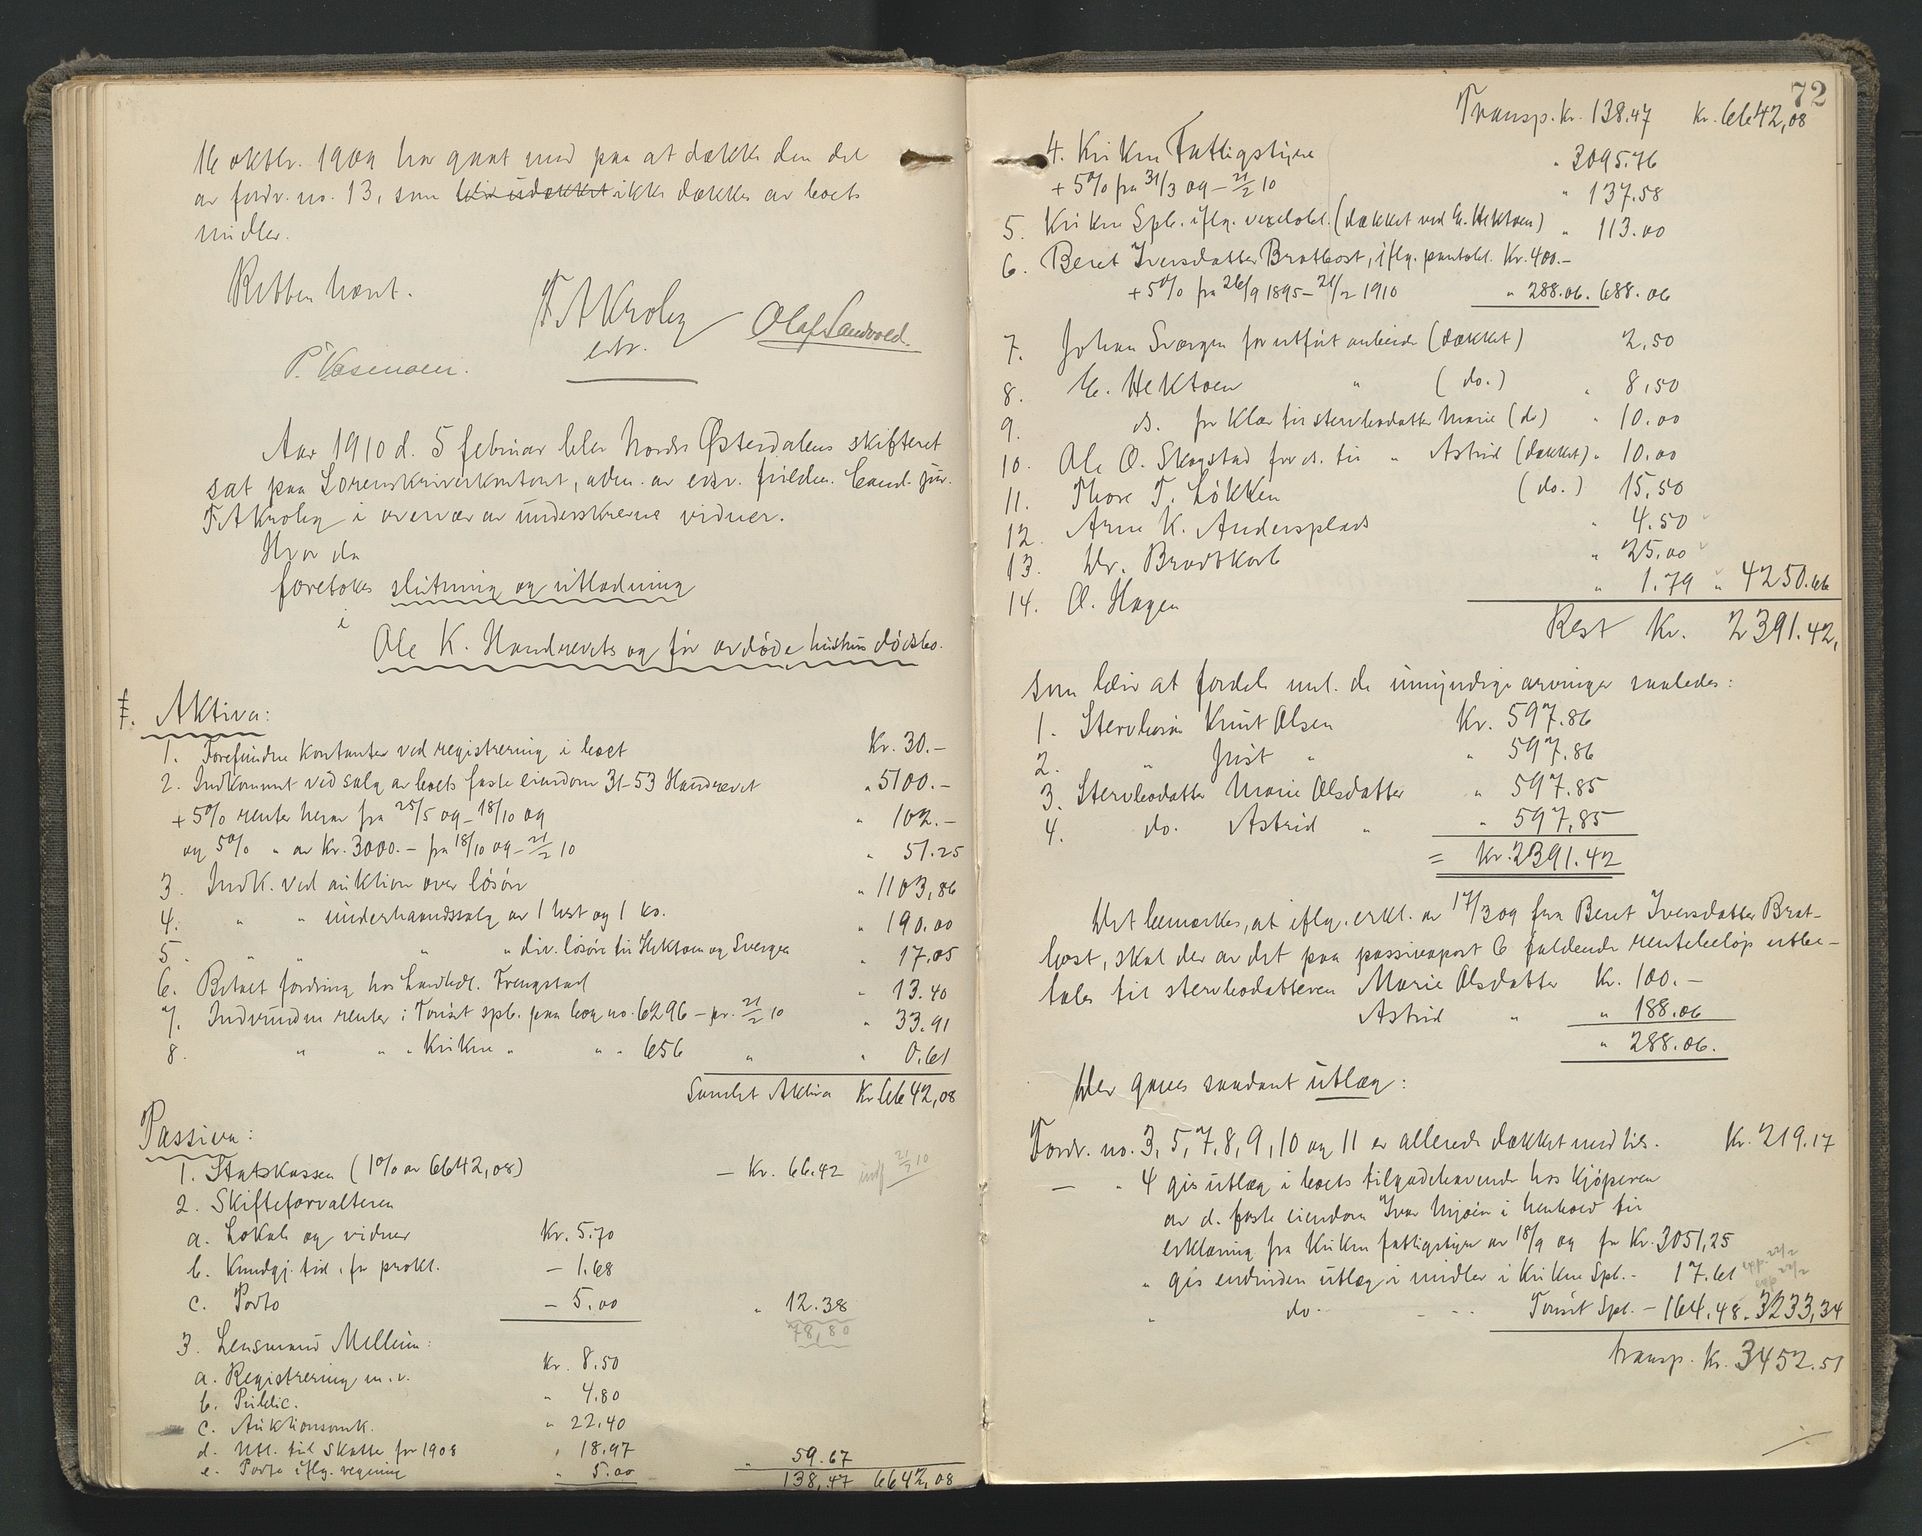 16 oktbr. 1909 har gaat med paa at dække den del
av fordr. no. 13, som blir udækket ikke dækkes av boets
midler.
Retten hævet.
F A Krohg
edsv.
Olaf Sandvold.
P.
Aar 1910 d. 5 februar blev Nordre Østerdalens skifteret
sat paa Sorenskriverkontoret, adm. av edsv. fuldm. Cand. jur.
F A Krohg i overvær av underskrevne vidner.
Hvor da
foretokes slutning og utlodning
i
Ole K. Handrevets og før avdøde hustrus dødsbo.
I. Aktiva:
1. Forefundne kontanter ved registrering i boet Kr. 30.-
2. Indkommet ved salg av boets faste eiendom 31-53 Handrevet " 5100.-
+ 5% renter herav fra 25/5 09 - 18/10 09 " 102.-
og 5% " av Kr. 3000.- fra 18/10 09 - 21/2 10 " 51.25
3. Indk. ved auktion over løsøre " 1103,86
4. " " underhaandssalg av 1 hest og 1 ko. " 190.00
5. " " " " div. løsøre til Hektoen og Svergen " 17.05
6. Betalt fordring hos Landhdl. Trengstad " 13.40
7. Indvundne renter i Tønset spb. paa bog no. 6296 - pr. 21/2 10 " 33.91
8. " " " Kvikne " " " 656 " " 0.61
Samlet Aktiva Kr. 6642,08
Passiva:
1. Statskassen (1% av 6642,08) — Kr. 66.42 indf 21/2 10
2. Skifteforvalteren
a. Lokale og vidner Kr. 5.70
b. Kundgj. tid. for prokl. — 1.68
c. Porto — 5.00 " 12.38
78,80
3. Lensmand Melleim:
a. Registrering m.v. Kr. 8.50
b. Public. " 4.80
c. Auktionsomk. " 22.40
d. Utl. til skatte for 1908 " 18.97
e. Porto iflg. regning " 5.00 " 59.67
138,47 6642,08
72
Transp. Kr. 138.47 Kr. 6642,08
4. Kvikne Fattigstyre " 3095.76
+ 5% fra 31/3 09 - 21/2 10 " 137.58
5. Kvikne Spb. iflg. vexelobl. (dækket ved E. Hektoen) " 113.00
6. Beret Iversdatter Bratbost, iflg. pantobl. Kr. 400.-
+ 5% fra 26/9 1895 - 21/2 1910 " 288.06. 688.06
7. Johan Svergen for utført arbeide (dækket) 2,50
8. E. Hektoen " (do.) " 8,50
9. ds. for klær til stervbodatter Marie (do) " 10.00
10. Ole O. Skogstad for ds. til " Astrid (dækket) " 10.00
11. Thore T. Løkken (do.) 15,50
12. Arne K. Andersplads " 4.50
13. Dr. Brodtkorb " 25.00
14. O. Hagen " 1.79 " 4250.66
Rest Kr. 2391.42,
som blir at fordele mel. de umyndige arvinger saaledes:
1. Stervbosøn Knut Olsen Kr. 597.86
2. " Just " " 597.86
3. Stervbodatter Marie Olsdatter " 597.85
4. do. Astrid " " 597,85
= Kr. 2391.42
Det bemerkes, at iflg. erkl. av 17/3 09 fra Beret Iversdatter Brat-
bost, skal der av det paa passivapost 6 faldende rentebeløp utbe-
tales til stervbodatteren Marie Olsdatter Kr. 100.-
Astrid " " 188.06
" 288.06.
Der gaves saadant utlæg:
Fordr. no. 3, 5, 7, 8, 9, 10 og 11 er allerede dækket med tils. Kr. 219.17
— " 4 gis utlæg i boets tilgodehavende hos kjøperen
av d. faste eiendom Ivar Mjøen i henhold til
erklæring fra Kvikne fattigstyre av 18/9 09 for Kr. 3051,25
" gis endvidere utlæg i midler i Kvikne Spb. - 17.61 exp. 22/2
exp 22/2
" do. - - - Tønset Spb. - 164.48. 3233,34
transp. Kr. 3452.51